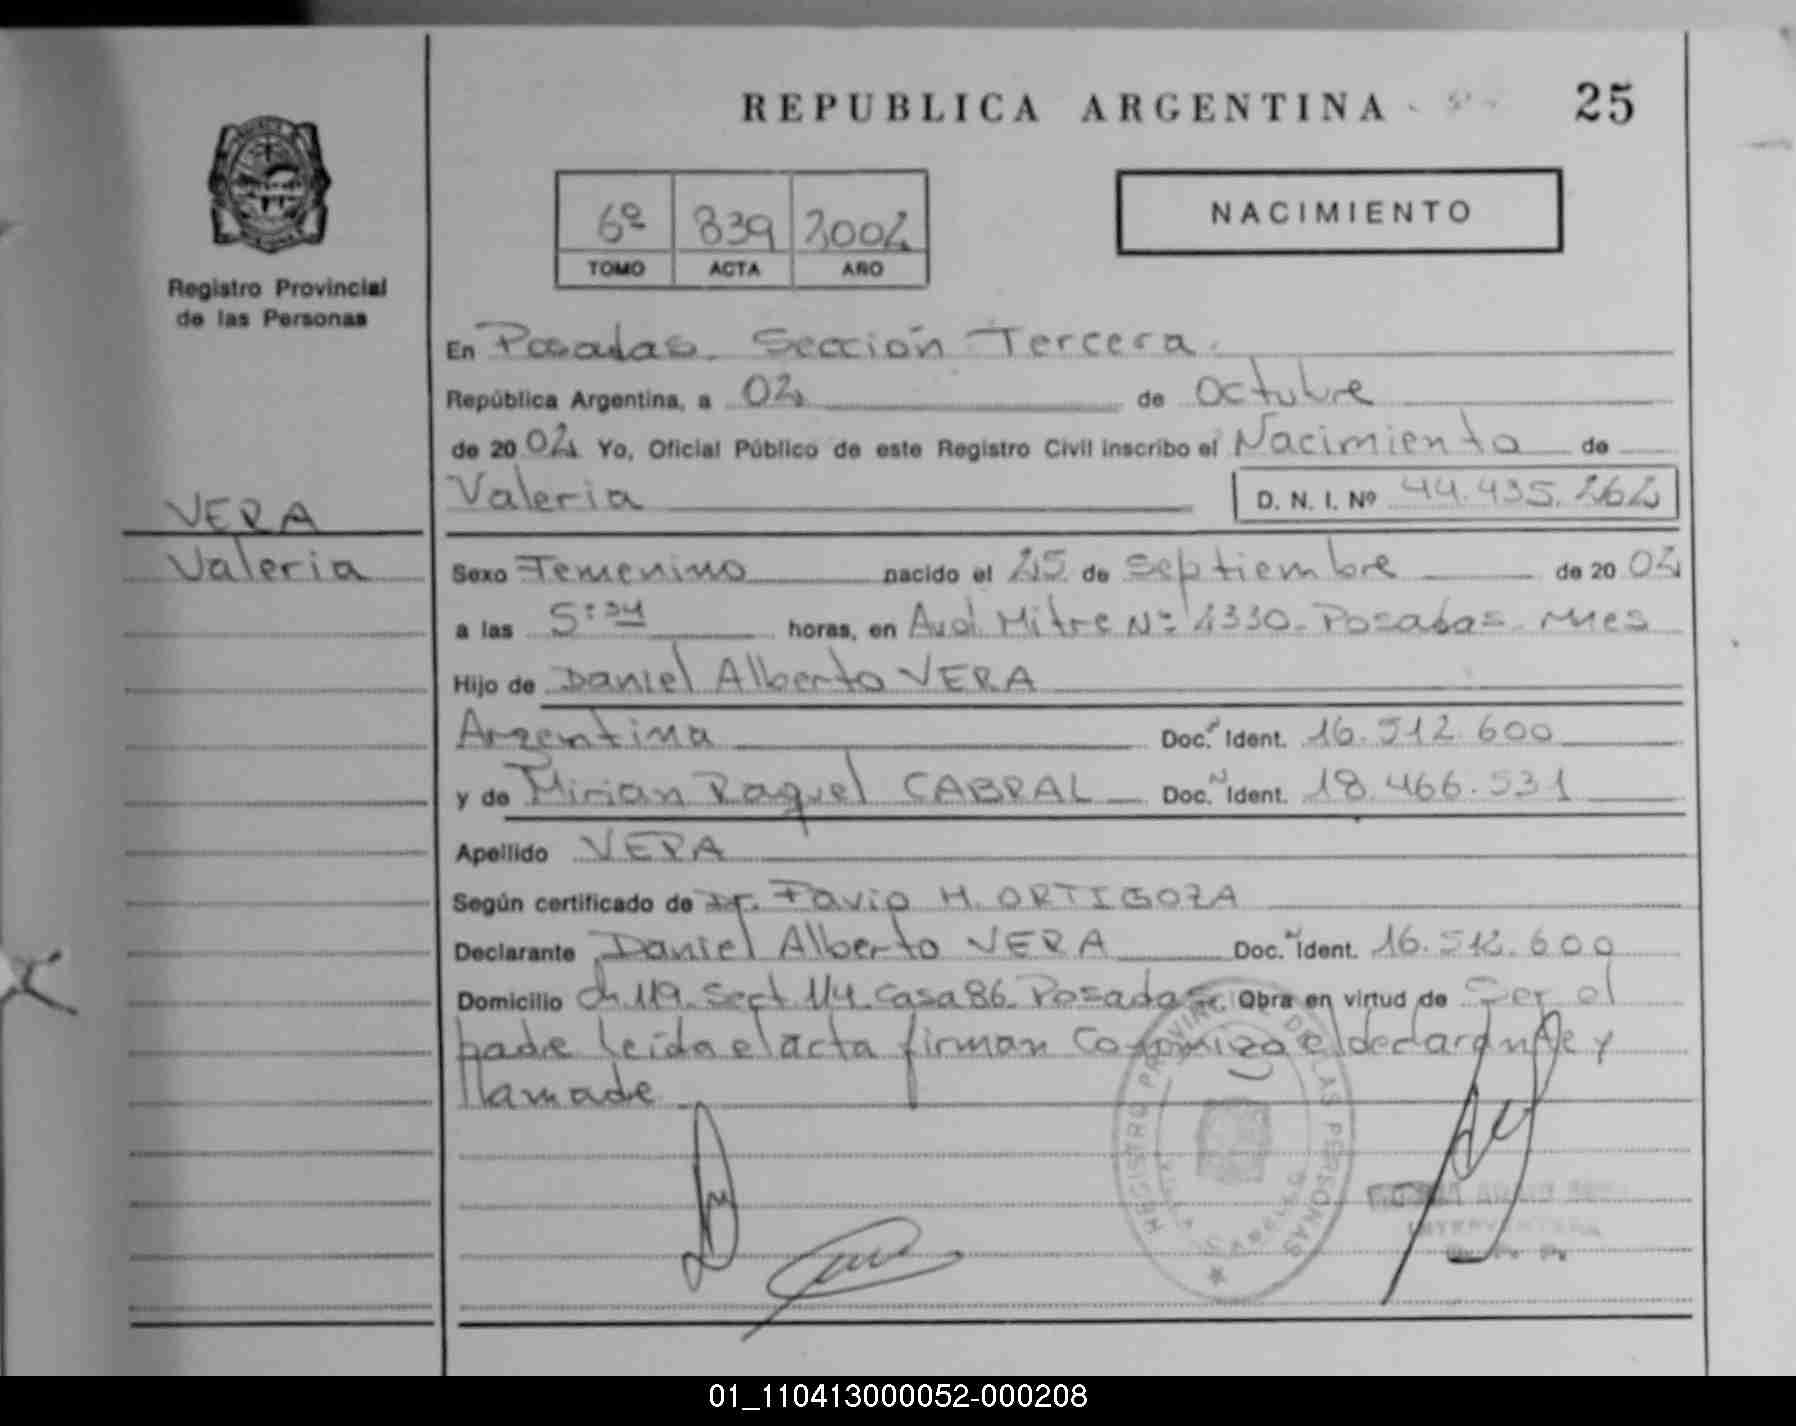 REPUBLICA ARGENTINA
25
6º 839 2002
TOMO ACTA AÑO
NACIMIENTO
Registro Provincial
de las Personas
En Posadas. Sección Tercera.
República Argentina, a 02 de Octubre
de 20 02 Yo, Oficial Público de este Registro Civil inscribo el Nacimiento de
Valeria D. N. I. Nº 44.435.262
VERA
Valeria
Sexo Femenino nacido el 25 de Septiembre de 20 02
a las 5:34 horas, en Avd. Mitre Nº 2330- Posadas- Mnes
Hijo de Daniel Alberto VERA
Argentina Doc. Ident. 16.512.600
y de Mirian Raquel CABRAL Doc. Ident. 18.466.531
Apellido VERA
Según certificado de Dr. Favio H. ORTIGOZA
Declarante Daniel Alberto VERA Doc. Ident. 16.512.600
Domicilio Ch 119. Sect 1/4. Casa 86. Posadas Obra en virtud de Ser el
padre leida el acta firman Conmigo el declarante y
llamade
REGISTRO PROVINCIAL DE LAS PERSONAS
01_110413000052-000208